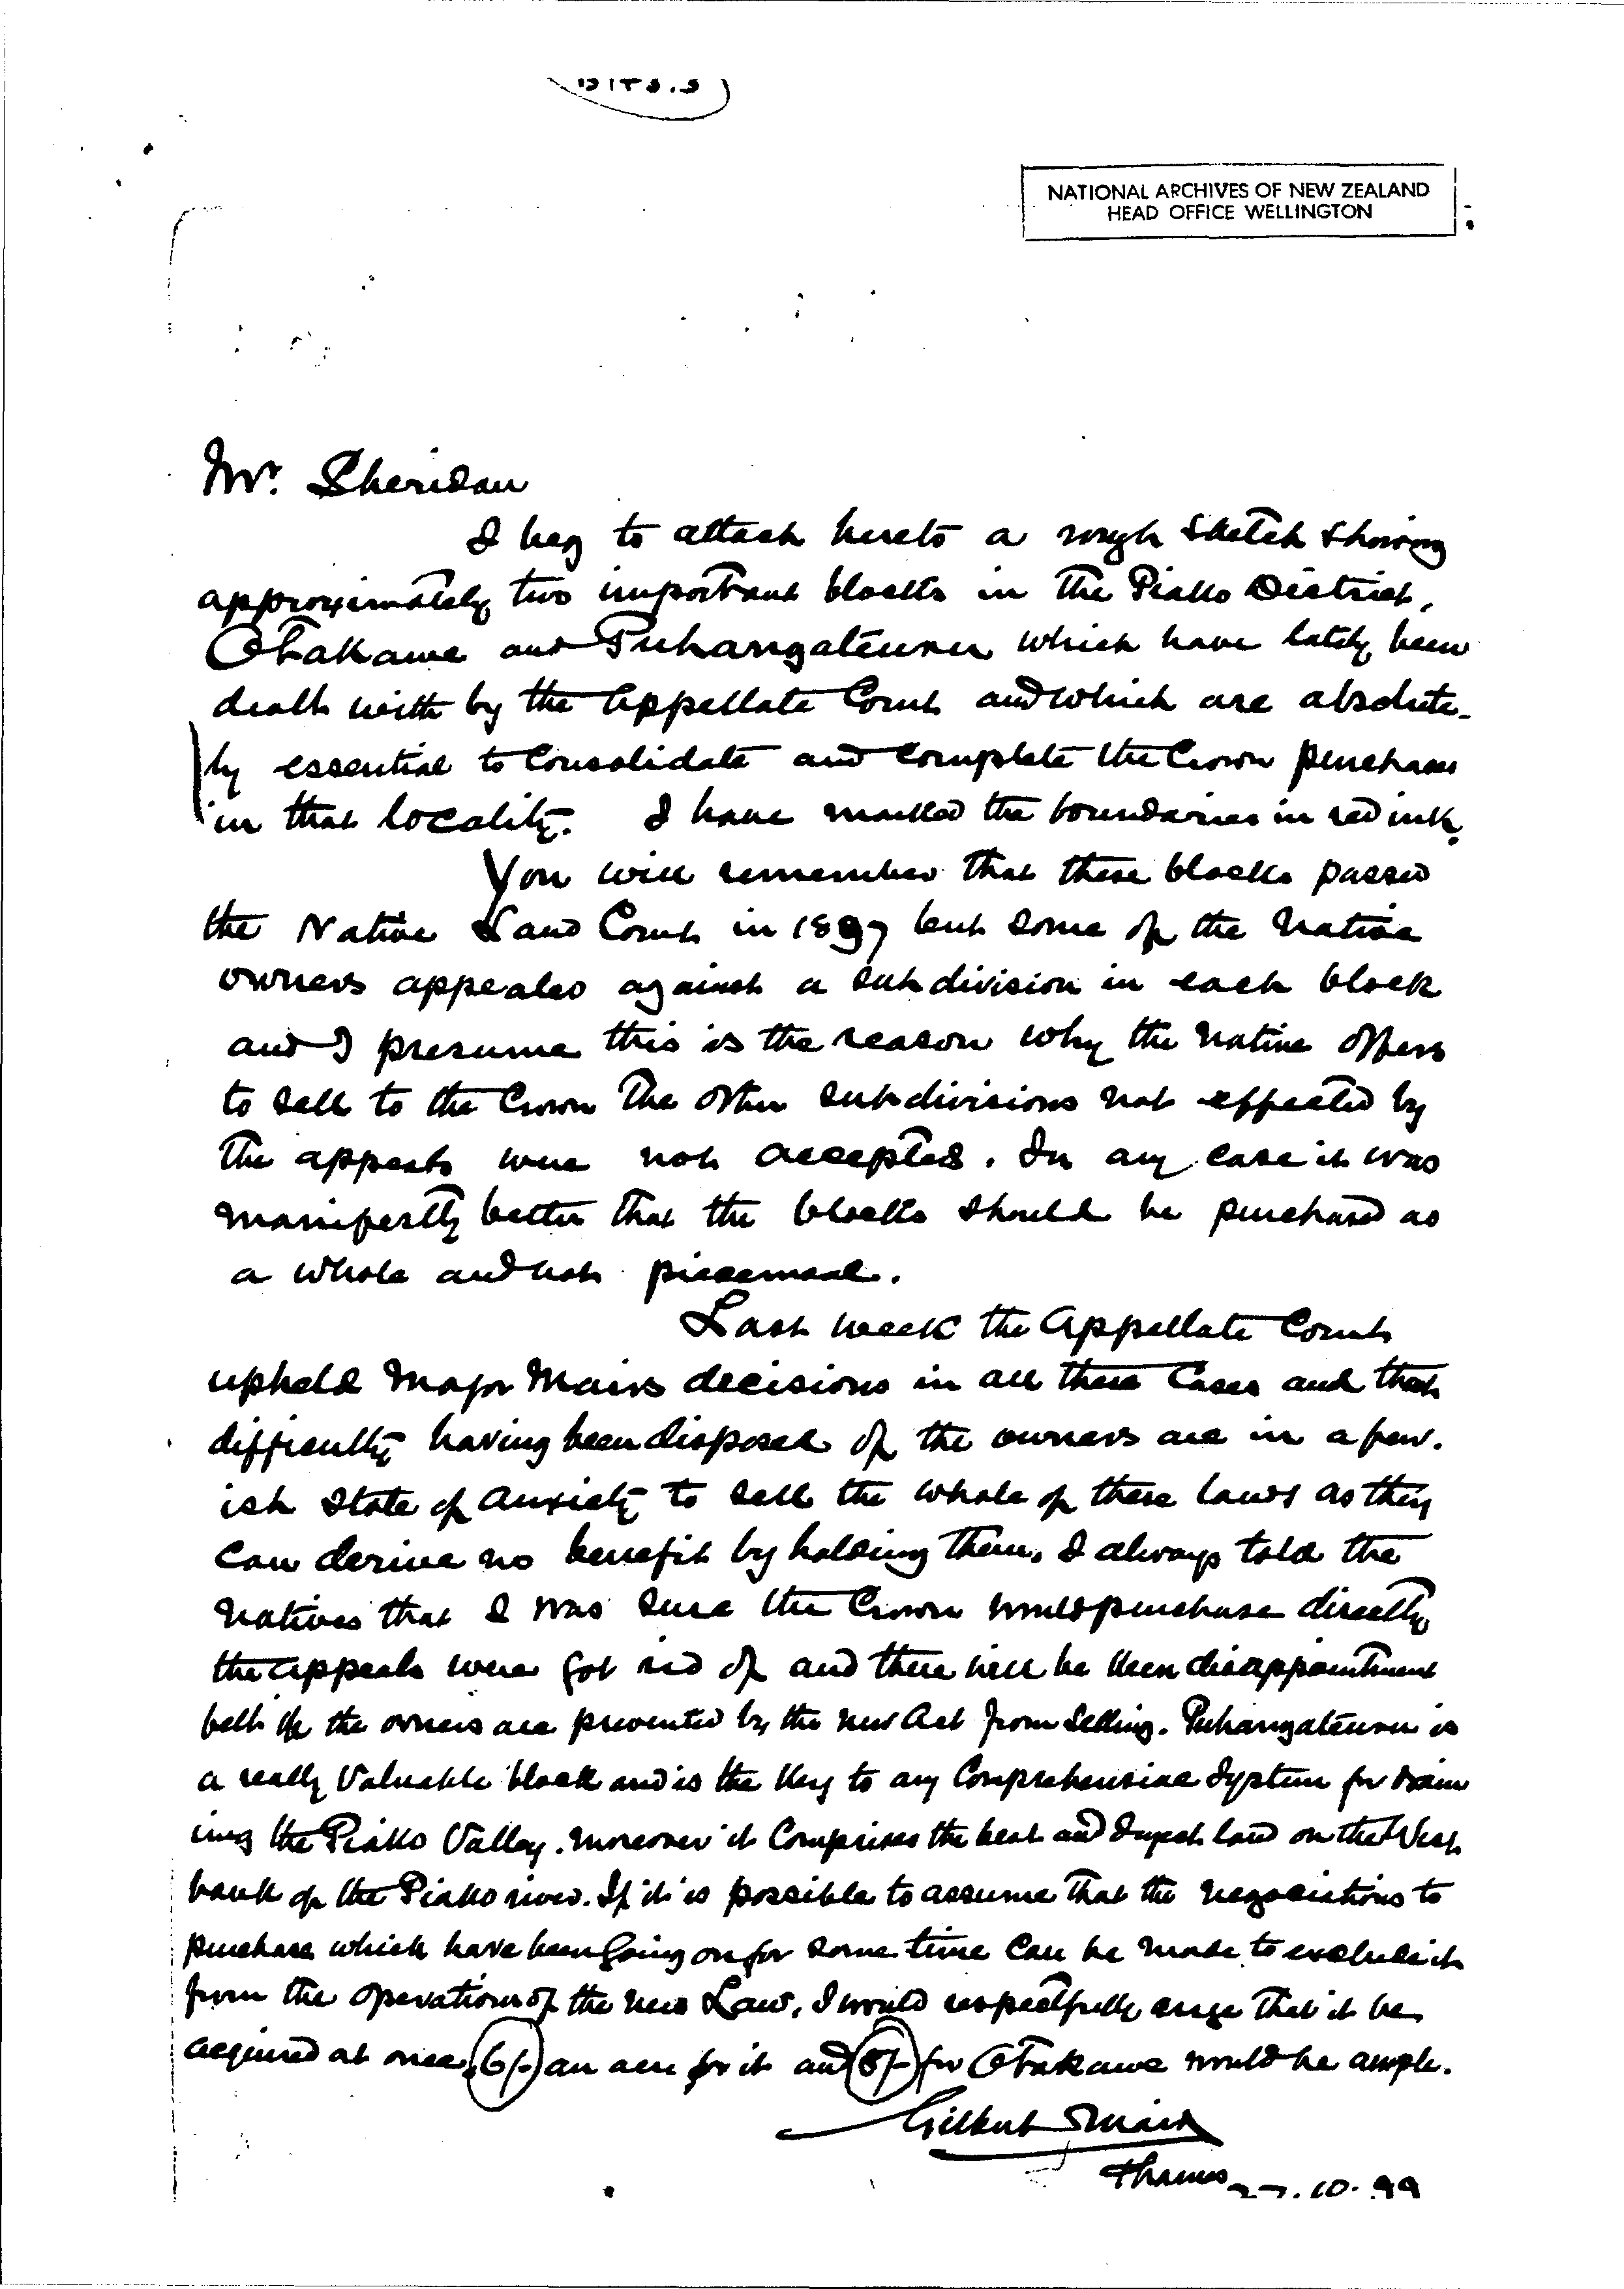 NATIONAL ARCHIVES OF NEW ZEALAND
HEAD OFFICE WELLINGTON
Mr. Sheridan
I beg to attach hereto a rough sketch showing
approximately two important blocks in the Piako District,
Otakawe and Puhangateuru which have lately been
dealt with by the Appellate Court and which are absolute-
ly essential to Consolidate and complete the Crown purchases
in that locality. I have marked the boundaries in red ink.
You will remember that these blocks passed
the Native Land Court in 1897 but some of the Native
owners appealed against a subdivision in each block
and I presume this is the reason why the native offers
to sell to the Crown the other subdivisions not effected by
the appeals were not accepted. In any case it was
manifestly better that the blocks should be purchased as
a whole and not piecemeal.
Last week the Appellate Court
upheld Major Mairs decisions in all these Cases and that
difficulty having been disposed of the owners are in a fever-
ish state of anxiety to sell the whole of these lands as they
can derive no benefit by holding them. I always told the
natives that I was sure the Crown would purchase directly
the appeals were got rid of and there will be keen disappointment
felt if the owners are prevented by the new Act from selling. Puhangateuru is
a really valuable block and is the key to any Comprehensive System for drain
ing the Piako Valley. Moreover it Comprises the best and land on the West
bank of the Piako river. If it is possible to assume that the negociations to
purchase which have been going on for some time can be made to exclude it
from the operations of the new Law, I would respectfully urge that it be
acquired at once, 6/- an acre for it and 5/- for Otakawe would be ample.
Gilbert Mair
Thames 27.10.99